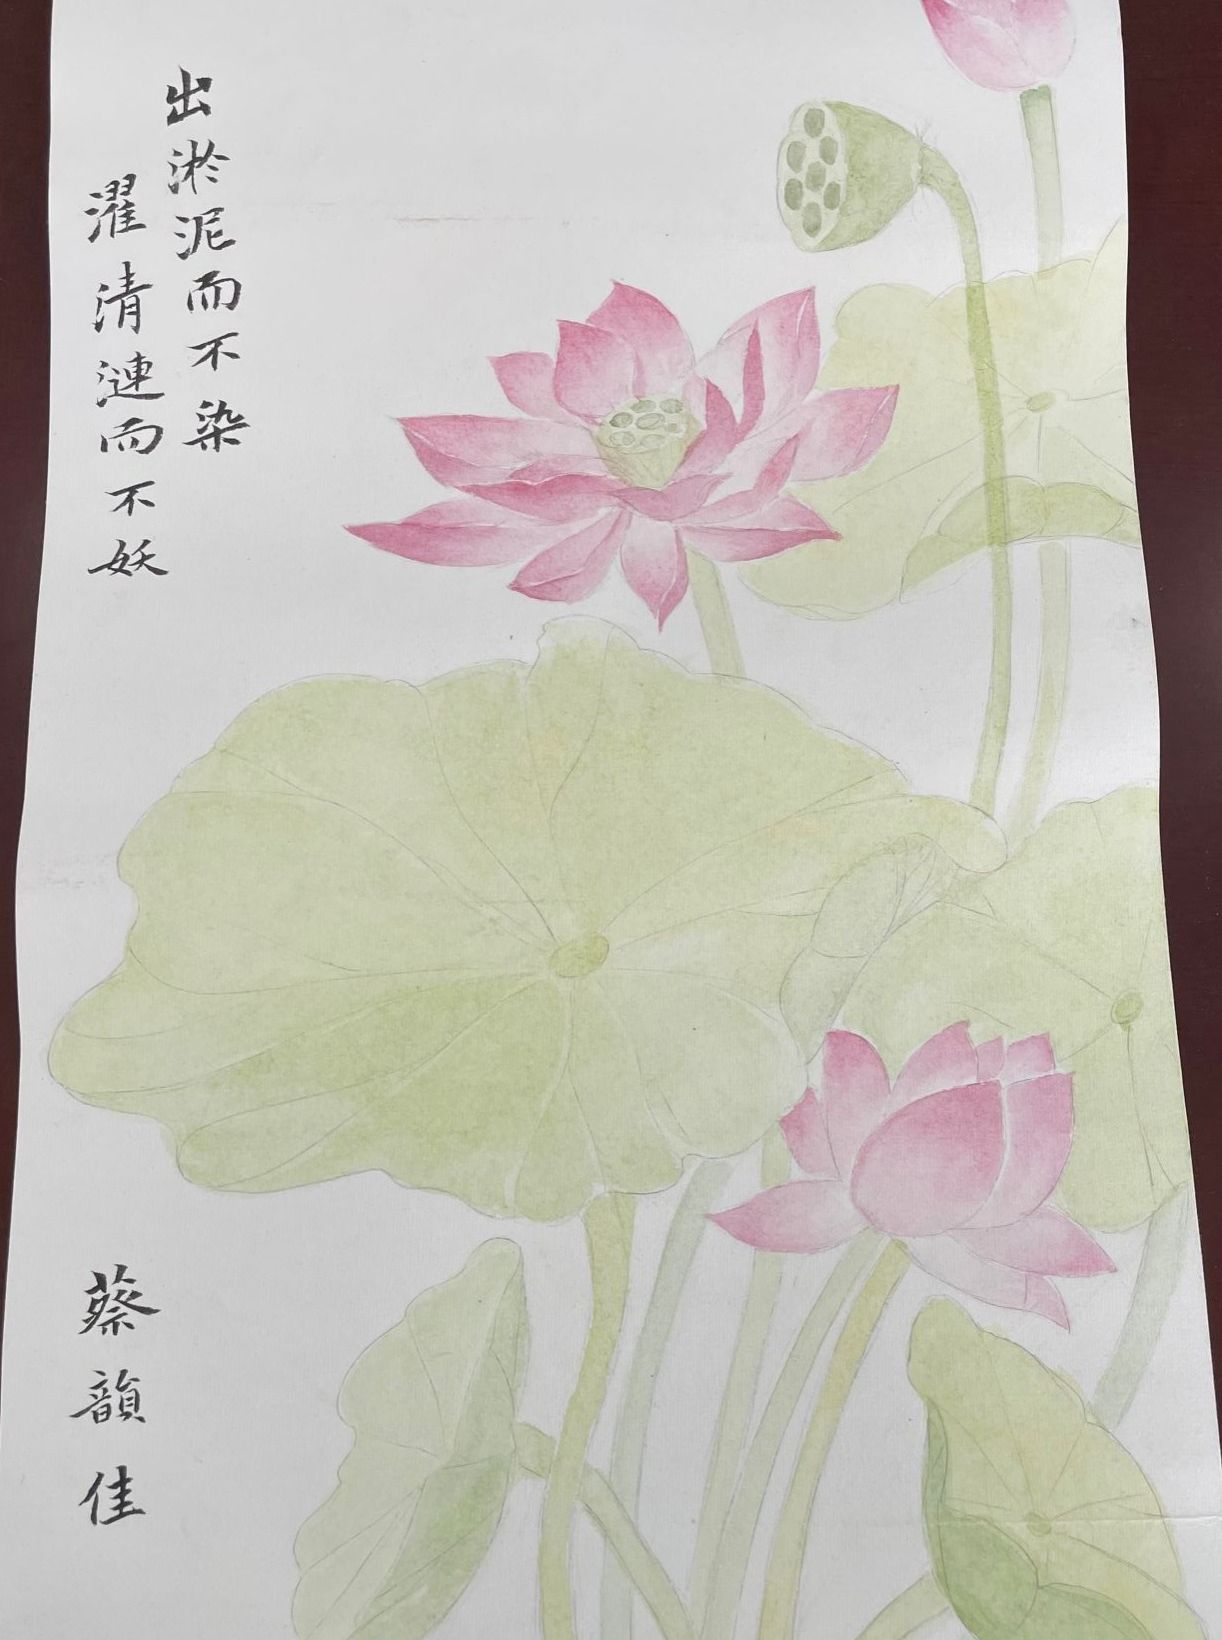 出淤泥而不染
濯清漣而不妖
蔡韻佳